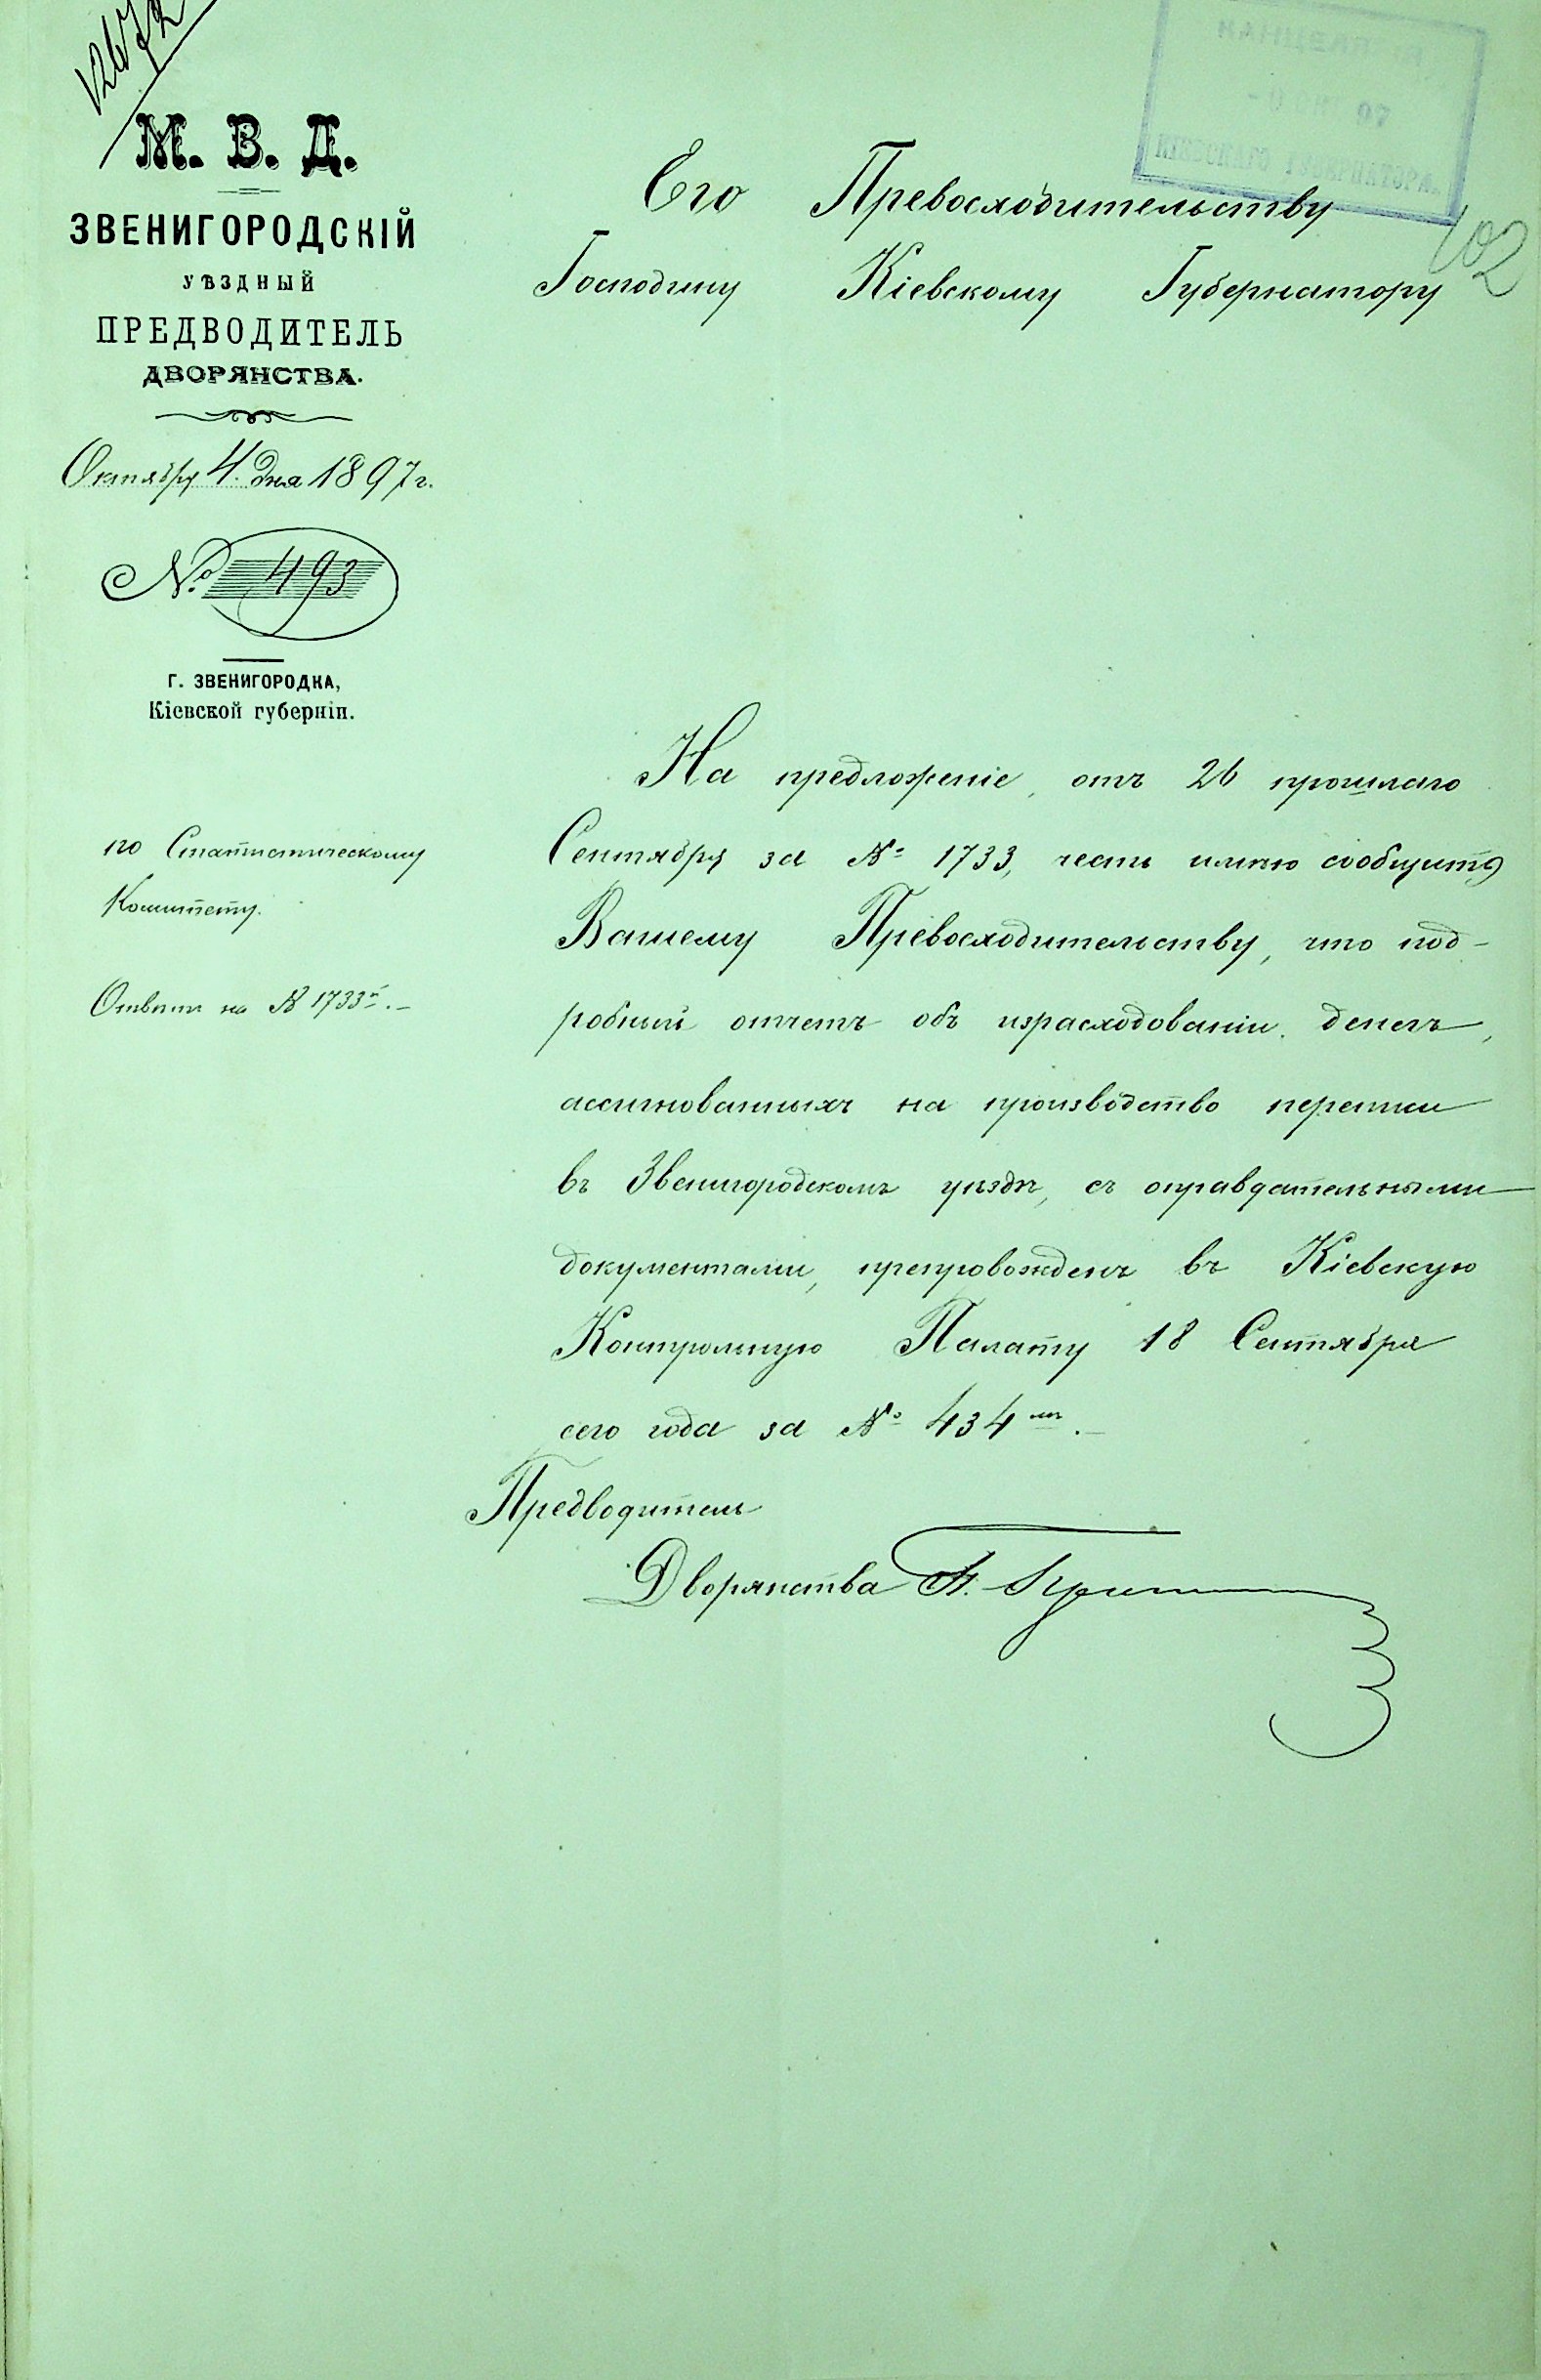 М. В. Д.
ЗВЕНИГОРОДСКІЙ
УѢЗДНЫЙ
ПРЕДВОДИТЕЛЬ
ДВОРЯНСТВА.
Октября 4 дня 1897 г.
№ 493
Г. ЗВЕНИГОРОДКА,
Кіевской губерніи.
по Статистическому
Комитету.
Отвѣтъ на № 1733й.-
КІЕВСКАГО ГУБЕРНАТОРА.
102
Его Превосходительству
Господину Кіевскому Губернатору
На предложеніе, отъ 26 прошлаго
Сентября за № 1733, честь имѣю сообщить
Вашему Превосходительству, что под-
робный отчетъ объ израсходованіи денегъ,
ассигнованныхъ на производство переписи
въ Звенигородскомъ уѣздѣ, съ оправдательными
документами, препровожденъ въ Кіевскую
Контрольную Палату 18 Сентября
сего года за № 434мъ.-
Предводитель
Дворянства